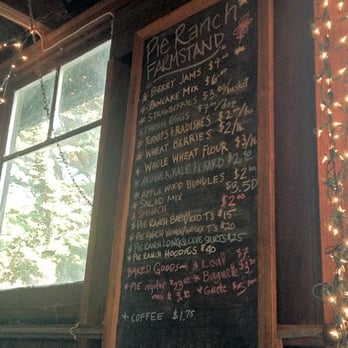 Pie Ranch
FARMSTAND
* BERRY JAMS $9.
* PANCAKE MIX $6.
* STRAWBERRIES $3.00/basket
* FRESH EGGS $7.00/doz
* TURNIPS & RADISHES $2.00
* WHEAT BERRIES $2/lb
* WHOLE WHEAT FLOUR $3/lb
KALE, CHARD $2.50
* APPLE WOOD BUNDLES $2.00
* SALAD MIX $3.50
* SPINACH $2.00
* PIE RANCH BABY/KID T'S $15
* PIE RANCH T'S $20
* PIE RANCH LONG SLEEVE SHIRTS $25
* PIE RANCH HOODIES $40
BAKED GOODS * Loaf $7
* PIE regular * Baguette
mini
* COFFEE $1.75